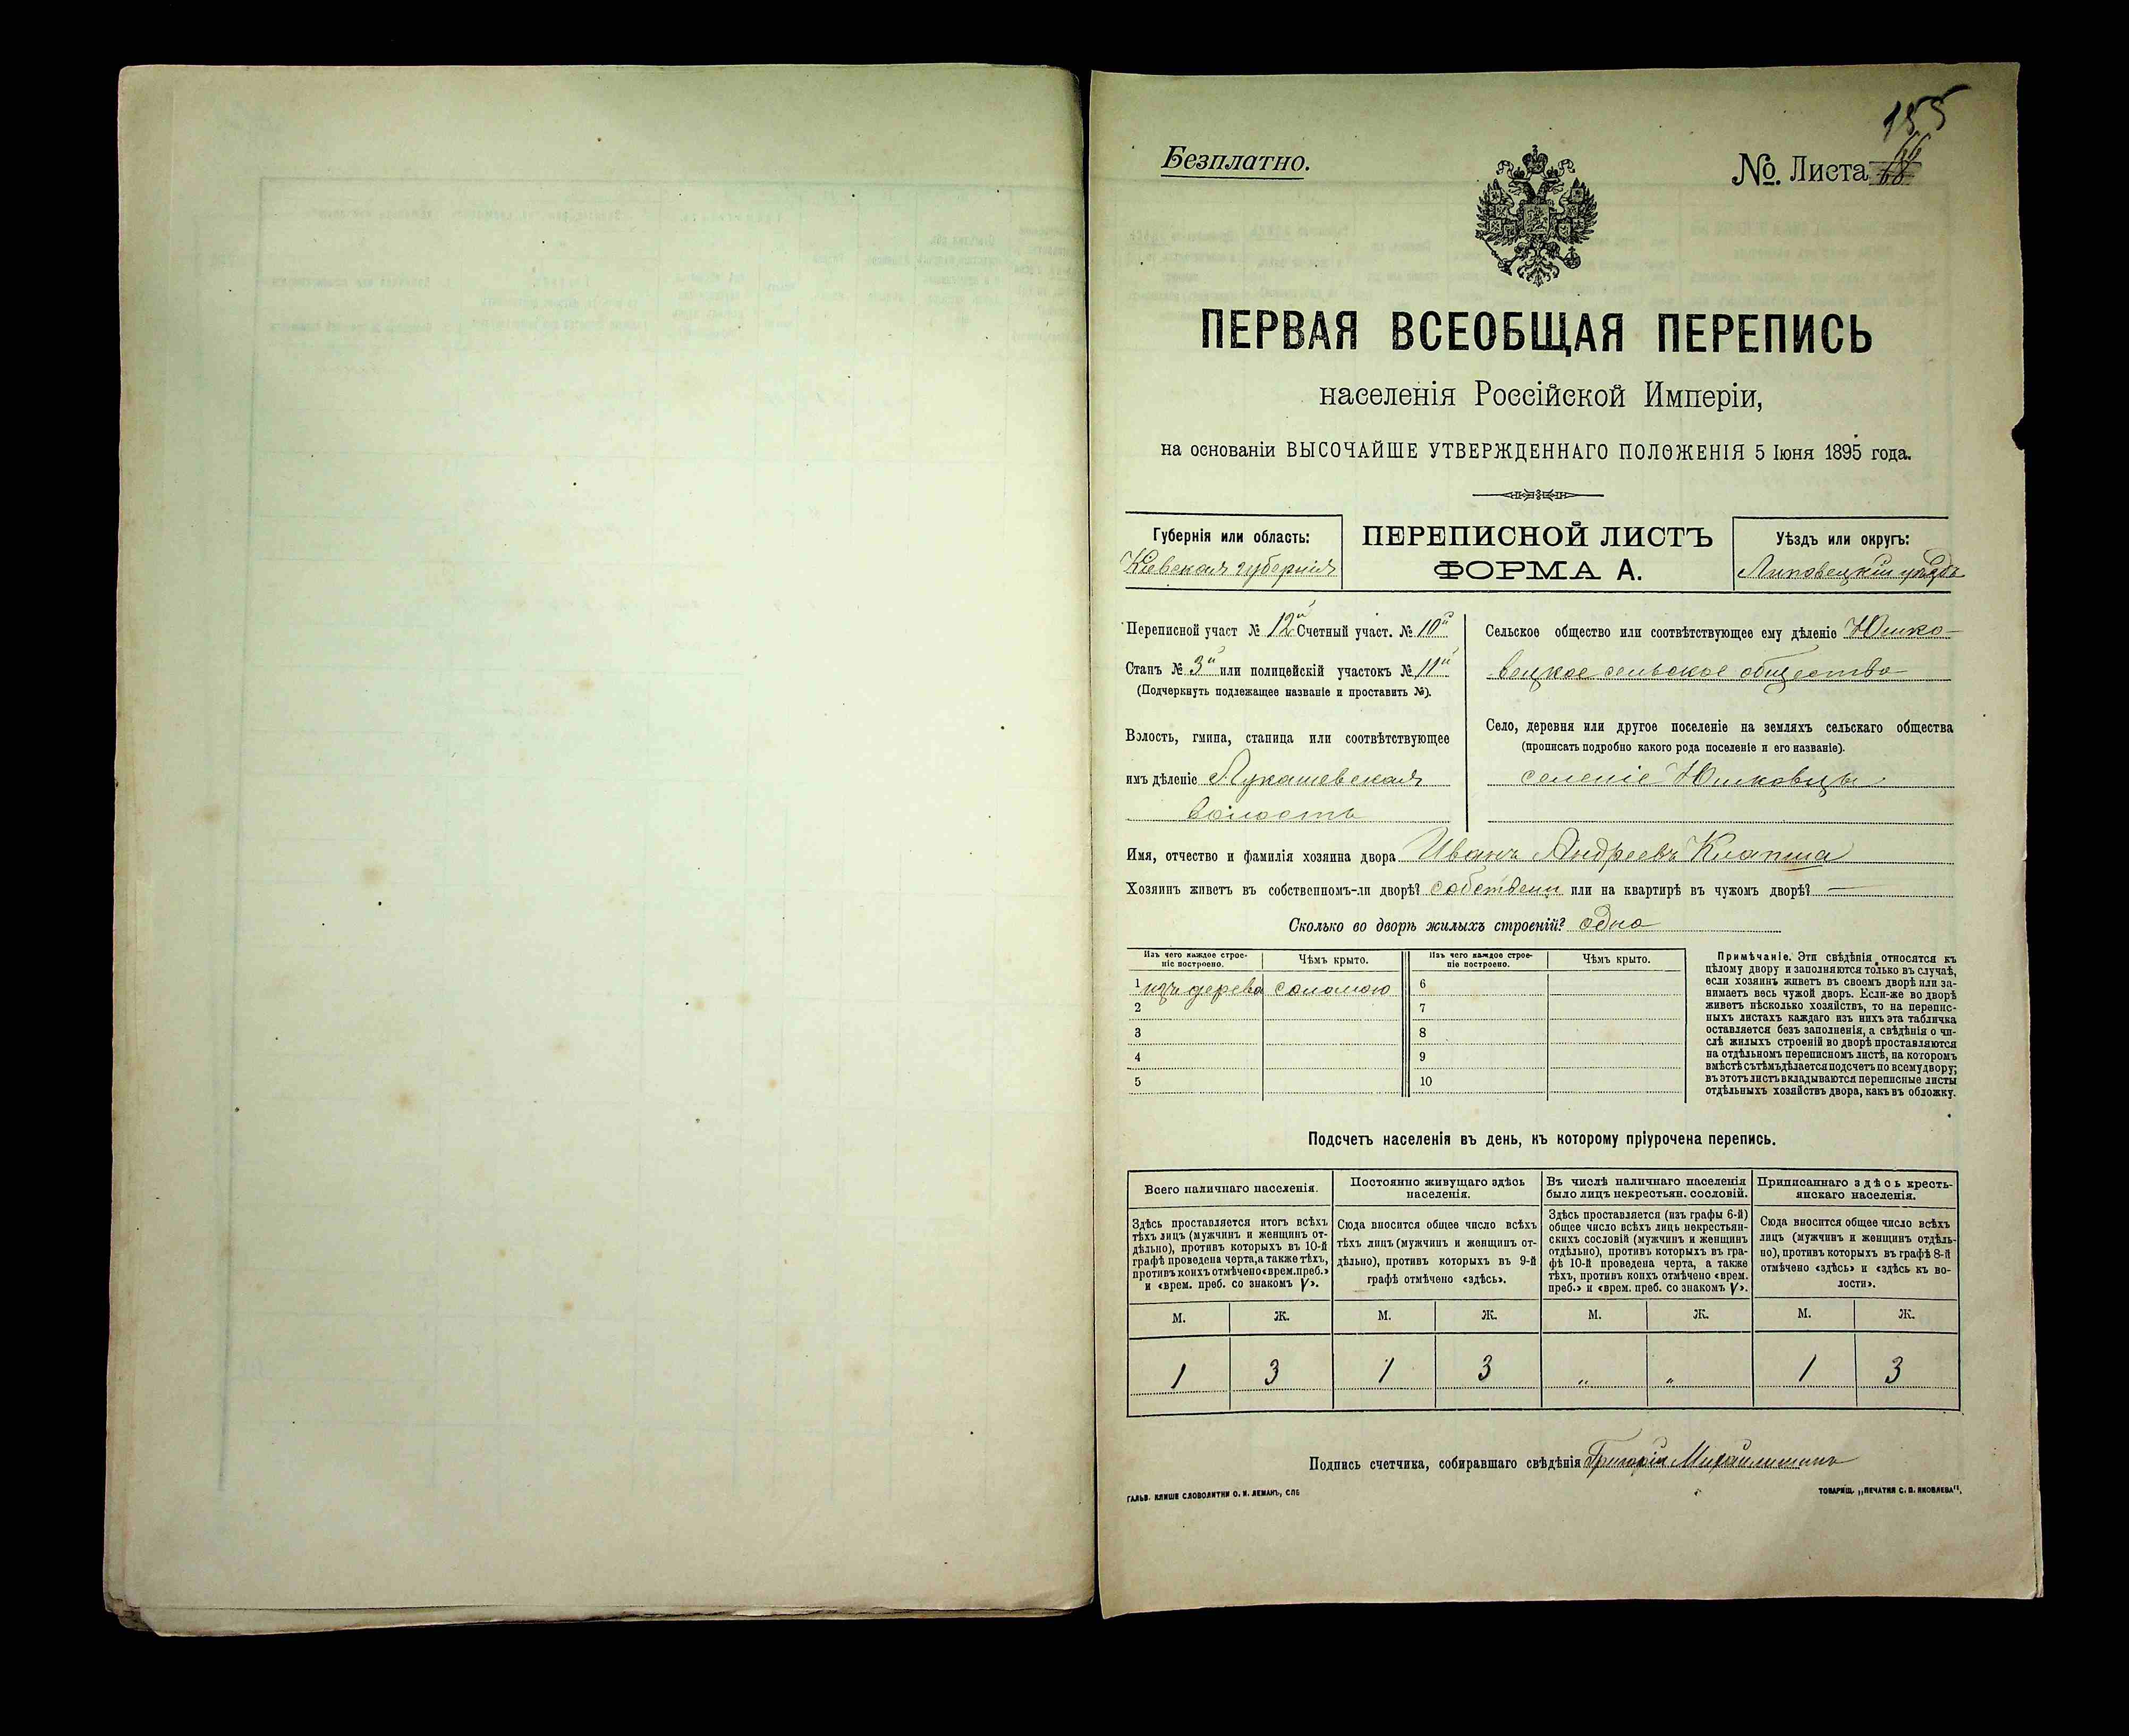 155
Безплатно.
№. Листа 66
ПЕРВАЯ ВСЕОБЩАЯ ПЕРЕПИСЬ
населенія Россійской Имперіи,
на основаніи ВЫСОЧАЙШЕ УТВЕРЖДЕННАГО ПОЛОЖЕНІЯ 5 Іюня 1895 года.
Губернія или область:
Кіевская губернія
ПЕРЕПИСНОЙ ЛИСТЪ
ФОРМА А.
Уѣздъ или округъ:
Липовецкій уѣздъ
Переписной участ № 12й Счетный участ. № 10й
Станъ № 3й или полицейскій участокъ № 11й
(Подчеркнуть подлежащее названіе и проставить №).
Волость, гмина, станица или соотвѣтствующее
имъ дѣленіе Лукашевская
волость
Сельское общество или соотвѣтствующее ему дѣленіе Юшко-
вецкое сельское общество
Село, деревня или другое поселеніе на земляхъ сельскаго общества
(прописать подробно какого рода поселеніе и его названіе).
селеніе Юшковцы
Имя, отчество и фамилія хозяина двора Иванъ Андреевъ Клапша
Хозяинъ живетъ въ собственномъ-ли дворѣ? собствени или на квартирѣ въ чужомъ дворѣ? —
Сколько во дворѣ жилыхъ строеній? одно
Изъ чего каждое строе-
ніе построено.
Чѣмъ крыто.
Изъ чего каждое строе-
ніе построено.
Чѣмъ крыто.
1 изъ дерева соломою 6
2 7
3 8
4 9
5 10
Примѣчаніе. Эти свѣдѣнія относятся къ
цѣлому двору и заполняются только въ случаѣ,
если хозяинъ живетъ въ своемъ дворѣ или за-
нимаетъ весь чужой дворъ. Если-же во дворѣ
живетъ нѣсколько хозяйствъ, то на перепис-
ныхъ листахъ каждаго изъ нихъ эта табличка
оставляется безъ заполненія, а свѣдѣнія о чи-
слѣ жилыхъ строеній во дворѣ проставляются
на отдѣльномъ переписномъ листѣ, на которомъ
вмѣстѣ съ тѣмъ дѣлается подсчетъ по всему двору;
въ этотъ листъ вкладываются переписные листы
отдѣльныхъ хозяйствъ двора, какъ въ обложку.
Подсчетъ населенія въ день, къ которому пріурочена перепись.
Всего наличнаго населенія.
Здѣсь проставляется итогъ всѣхъ
тѣхъ лицъ (мужчинъ и женщинъ от-
дѣльно), противъ которыхъ въ 10-й
графѣ проведена черта, а также тѣхъ,
противъ коихъ отмѣчено «врем. преб.»
и «врем. преб. со знакомъ V».
Постоянно живущаго здѣсь
населенія.
Сюда вносится общее число всѣхъ
тѣхъ лицъ (мужчинъ и женщинъ от-
дѣльно), противъ которыхъ въ 9-й
графѣ отмѣчено «здѣсь».
Въ числѣ наличнаго населенія
было лицъ некрестьян. сословій.
Здѣсь проставляется (изъ графы 6-й)
общее число всѣхъ лицъ некрестьян-
скихъ сословій (мужчинъ и женщинъ
отдѣльно), противъ которыхъ въ гра-
фѣ 10-й проведена черта, а также
тѣхъ, противъ коихъ отмѣчено «врем.
преб.» и «врем. преб. со знакомъ V».
Приписаннаго здѣсь кресть-
янскаго населенія.
Сюда вносится общее число всѣхъ
лицъ (мужчинъ и женщинъ отдѣль-
но), противъ которыхъ въ графѣ 8-й
отмѣчено «здѣсь» и «здѣсь къ во-
лости».
М. Ж. М. Ж. М. Ж. М. Ж.
1 3 1 3 „ „ 1 3
Подпись счетчика, собиравшаго свѣдѣнія Григорій
ГАЛЬВ. КЛИШЕ СЛОВОЛИТНИ О. И. ЛЕМАНЪ, СПБ
ТОВАРИЩ. „ПЕЧАТНЯ С. П. ЯКОВЛЕВА".